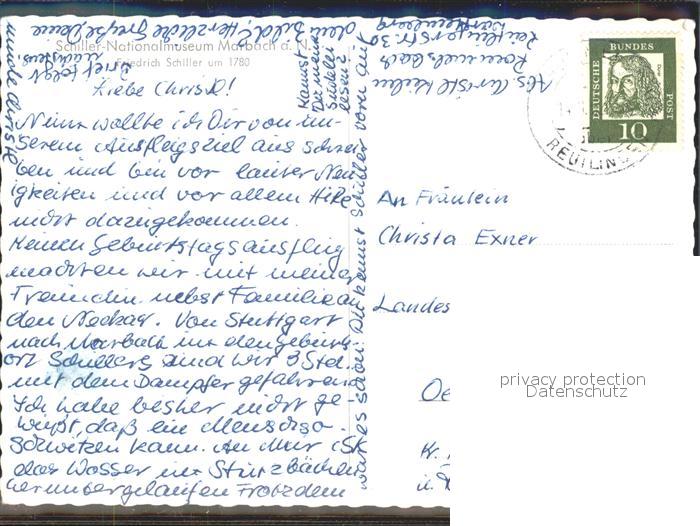 Schiller-Nationalmuseum Marbach a. N.
Friedrich Schiller um 1780
Liebe Christl!
Nun wollte ich Dir von un-
serem Ausflugsziel aus schrei
ben und bin vor lauter Neu
igkeiten und vor allem Hitze
nicht dazugekommen.
Meinen Geburtstagsausflug
machten wir mit meiner
Freundin nebst Familie an
den Neckar. Von Stuttgart
nach Marbach in den Geburts
ort Schillers sind wir 3 Std.
mit dem Dampfer gefahren.
Ich habe bisher nicht ge-
wußt, daß ein Mensch so
schwitzen kann. An mir ist
das Wasser in Sturzbächen
herunter gelaufen Trotzdem
war es schön. Du kannst Schiller vorn auf
dem Bild
Kannst
Du meine
lesen?
Brief folgt
Herzliche Grüße Deine
DEUTSCHE BUNDESPOST
Dürer
10
REUTLINGEN
An Fräulein
Christa Exner
Landes
Oe
Kr.
privacy protection
Datenschutz